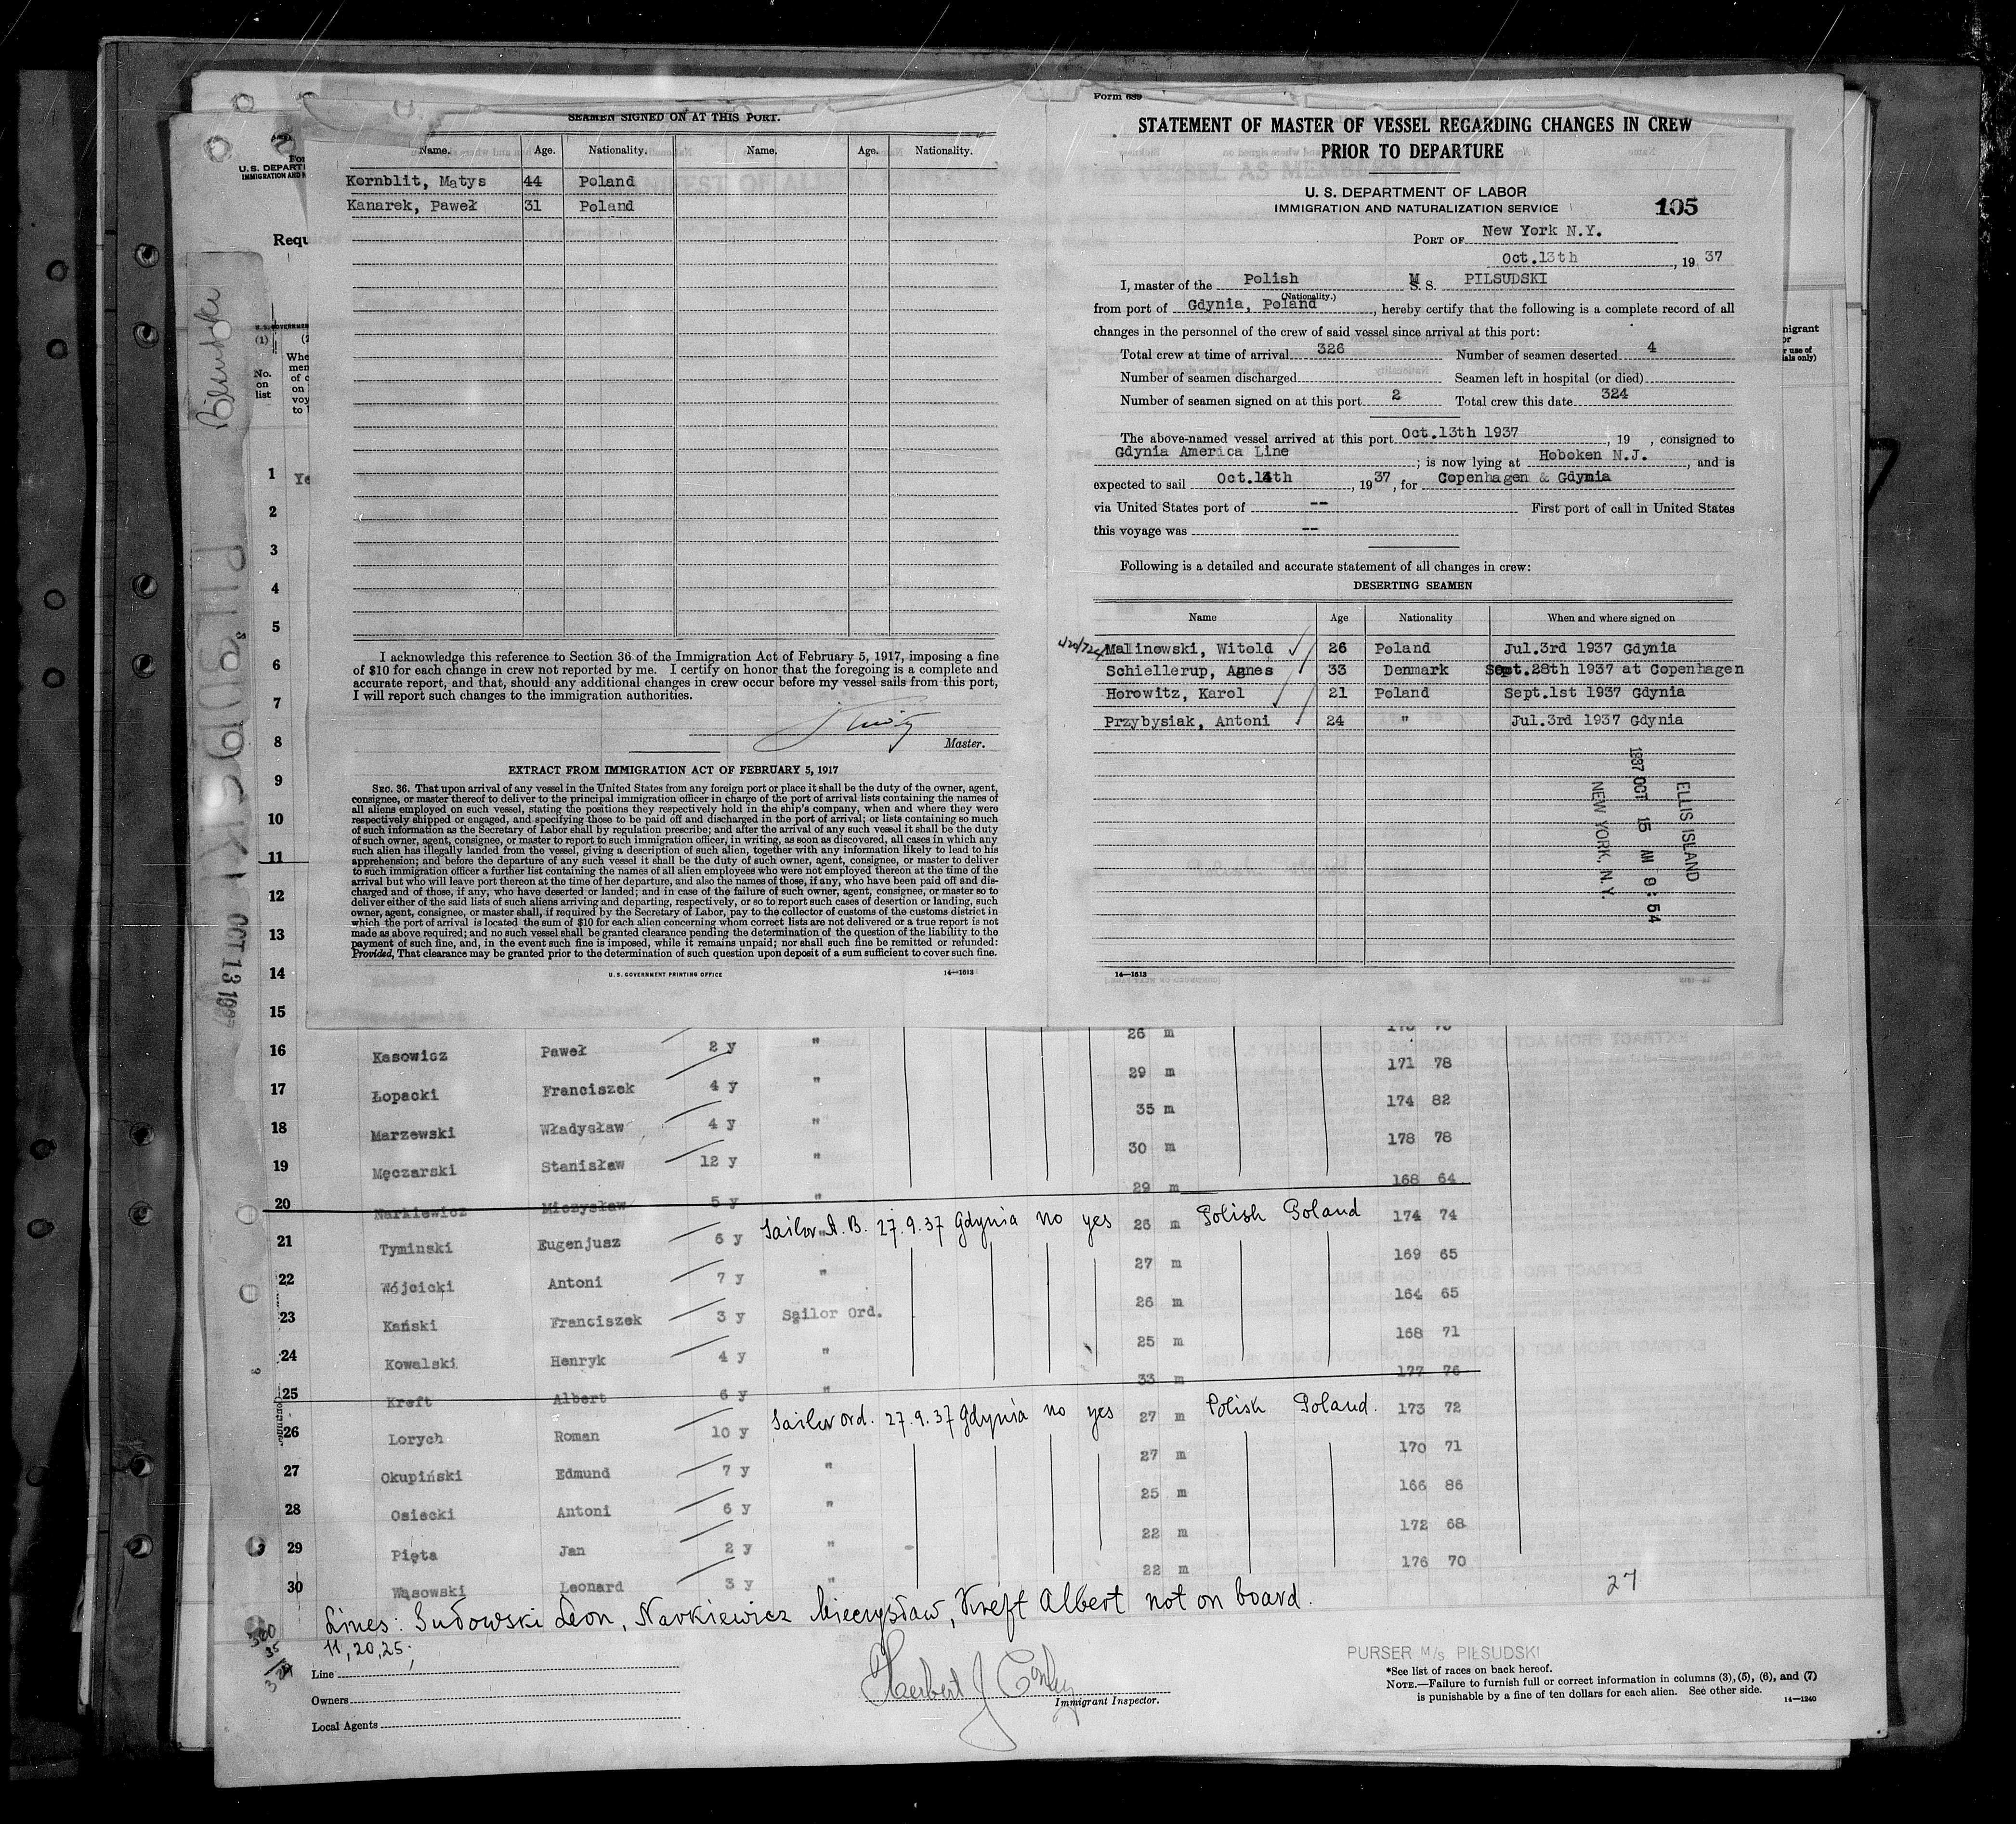 SEAMEN SIGNED ON AT THIS PORT.
Name. Age. Nationality. Name. Age. Nationality.
Kornblit, Matys 44 Poland
Kanarek, Paweł 31 Poland
I acknowledge this reference to Section 36 of the Immigration Act of February 5, 1917, imposing a fine
of $10 for each change in crew not reported by me. I certify on honor that the foregoing is a complete and
accurate report, and that, should any additional changes in crew occur before my vessel sails from this port,
I will report such changes to the immigration authorities.
Master.
EXTRACT FROM IMMIGRATION ACT OF FEBRUARY 5, 1917
SEC. 36. That upon arrival of any vessel in the United States from any foreign port or place it shall be the duty of the owner, agent,
consignee, or master thereof to deliver to the principal immigration officer in charge of the port of arrival lists containing the names of
all aliens employed on such vessel, stating the positions they respectively hold in the ship's company, when and where they were
respectively shipped or engaged, and specifying those to be paid off and discharged in the port of arrival; or lists containing so much
of such information as the Secretary of Labor shall by regulation prescribe; and after the arrival of any such vessel it shall be the duty
of such owner, agent, consignee, or master to report to such immigration officer, in writing, as soon as discovered, all cases in which any
such alien has illegally landed from the vessel, giving a description of such alien, together with any information likely to lead to his
apprehension; and before the departure of any such vessel it shall be the duty of such owner, agent, consignee, or master to deliver
to such immigration officer a further list containing the names of all alien employees who were not employed thereon at the time of the
arrival but who will leave port thereon at the time of her departure, and also the names of those, if any, who have been paid off and dis-
charged and of those, if any, who have deserted or landed; and in case of the failure of such owner, agent, consignee, or master so to
deliver either of the said lists of such aliens arriving and departing, respectively, or so to report such cases of desertion or landing, such
owner, agent, consignee, or master shall, if required by the Secretary of Labor, pay to the collector of customs of the customs district in
which the port of arrival is located the sum of $10 for each alien concerning whom correct lists are not delivered or a true report is not
made as above required; and no such vessel shall be granted clearance pending the determination of the question of the liability to the
payment of such fine, and, in the event such fine is imposed, while it remains unpaid; nor shall such fine be remitted or refunded:
Provided, That clearance may be granted prior to the determination of such question upon deposit of a sum sufficient to cover such fine.
U. S. GOVERNMENT PRINTING OFFICE 14—1613
Form 689
STATEMENT OF MASTER OF VESSEL REGARDING CHANGES IN CREW
PRIOR TO DEPARTURE
U. S. DEPARTMENT OF LABOR
IMMIGRATION AND NATURALIZATION SERVICE
105
PORT OF New York N.Y.
Oct.13th, 19 37
I, master of the Polish M S. S. PILSUDSKI
(Nationality.)
from port of Gdynia, Poland, hereby certify that the following is a complete record of all
changes in the personnel of the crew of said vessel since arrival at this port:
Total crew at time of arrival 326 Number of seamen deserted 4
Number of seamen discharged Seamen left in hospital (or died)
Number of seamen signed on at this port 2 Total crew this date 324
The above-named vessel arrived at this port Oct.13th 1937, 19 , consigned to
Gdynia America Line; is now lying at Hoboken N.J., and is
expected to sail Oct.14th, 19 37, for Copenhagen & Gdynia
via United States port of -- First port of call in United States
this voyage was --
Following is a detailed and accurate statement of all changes in crew:
DESERTING SEAMEN
Name Age Nationality When and where signed on
Malinowski, Witold 26 Poland Jul.3rd 1937 Gdynia
Schiellerup, Agnes 33 Denmark Sept.28th 1937 at Copenhagen
Horowitz, Karol 21 Poland Sept.1st 1937 Gdynia
Przybysiak, Antoni 24 " Jul.3rd 1937 Gdynia
ELLIS ISLAND
1937 OCT 15 AM 9:54
NEW YORK, N.Y.
14—1613
U. S. DEPARTM
IMMIGRATION AND N
Requ
(1)
No.
on
list
Pilsudski
PIŁSUDSKI OCT 13 1937
1 Ye
2
3
4
5
6
7
8
9
10
11
12
13
14
15
16 Kasowicz Paweł 2 y " 26 m
17 Łopacki Franciszek 4 y " 29 m 171 78
18 Marzewski Władysław 4 y " 35 m 174 82
19 Męczarski Stanisław 12 y " 30 m 178 78
20 Narkiewicz Mieczysław 5 y " 29 m 168 64
21 Tyminski Eugenjusz 6 y Sailor A. B. 27.9.37 Gdynia no yes 26 m Polish Poland 174 74
22 Wójcicki Antoni 7 y " 27 m 169 65
23 Kański Franciszek 3 y Sailor Ord. 26 m 164 65
24 Kowalski Henryk 4 y " 25 m 168 71
25 Kreft Albert 6 y " 33 m 177 76
26 Lorych Roman 10 y Sailor ord. 27.9.37 Gdynia no yes 27 m Polish Poland. 173 72
27 Okupiński Edmund 7 y " 27 m 170 71
28 Osiecki Antoni 6 y " 25 m 166 86
29 Pięta Jan 2 y " 22 m 172 68
30 Wąsowski Leonard 3 y " 22 m 176 70
27
Lines: Sudowski Leon, Narkiewicz Mieczysław, Kreft Albert not on board.
11, 20, 25;
Line
Owners
Local Agents
Immigrant Inspector.
PURSER M/s PIŁSUDSKI
*See list of races on back hereof.
NOTE.—Failure to furnish full or correct information in columns (3), (5), (6), and (7)
is punishable by a fine of ten dollars for each alien. See other side.
14—1240